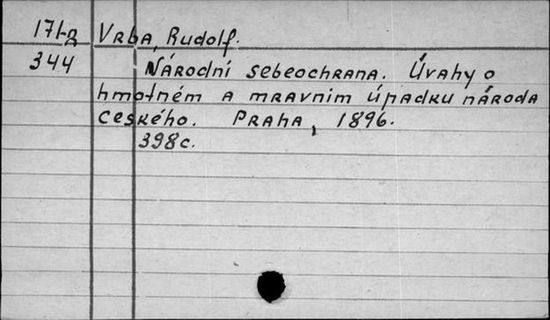 Vrba, Rudolf.
344 Národní sebeochrana. Úvahy o
hmotném a mravnim úpadku národa
českého. Praha, 1896.
398c.